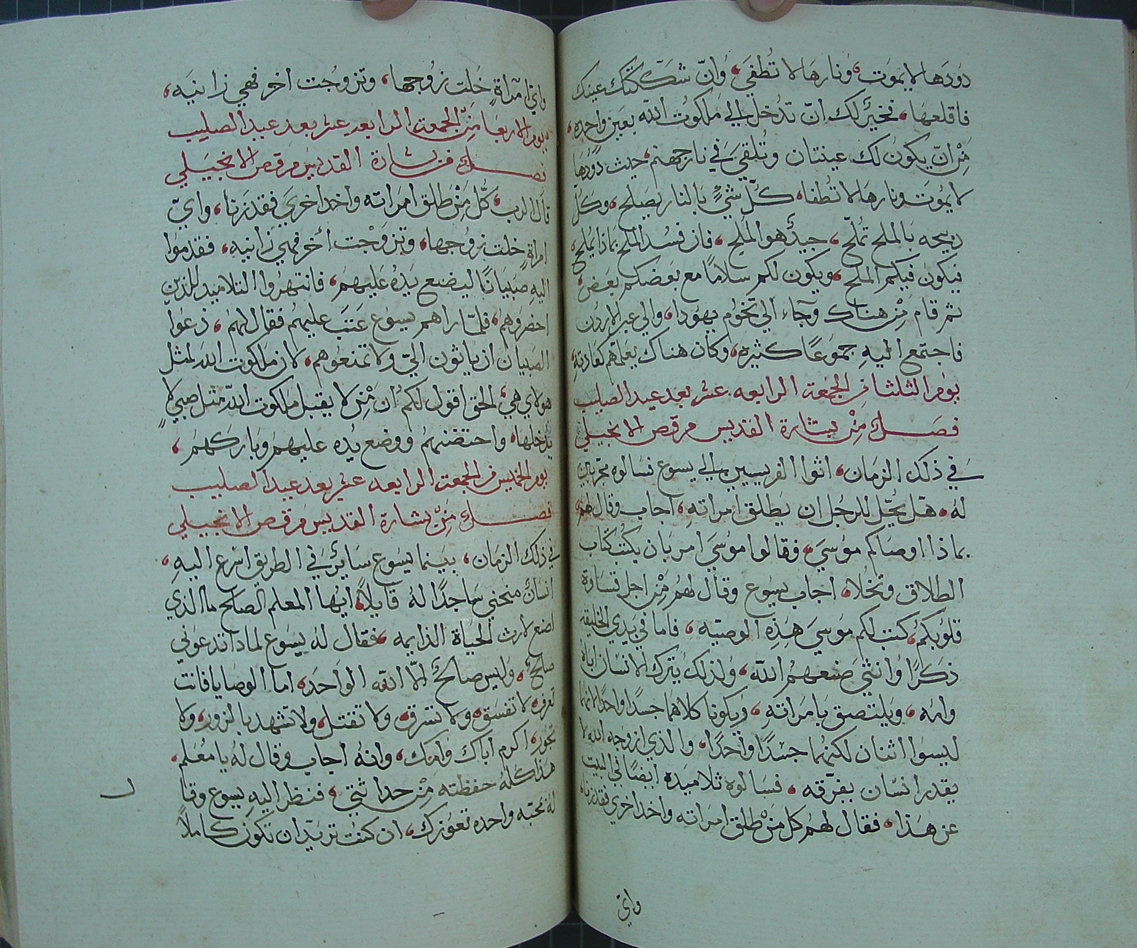 دودها لا يموت، ونارها لا تطفي، وان شككتك عينك
فاقلعها، فخير لك ان تدخل الي ملكوت الله بعين واحده،
من ان يكون لك عينتان وتلقي في نار جهنم، حيث دودها
لا يموت ونارها لا تطفا، كل شي بالنار يصلح، وكل
دبيحه بالملح تملح، جيد هو الملح، فان فسد الملح بماذا يملح،
فيكون فيكم الملح، ويكون لكم سلاما مع بعضكم بعض،
ثم قام من هناك وجاء الي تخوم يهودا، والي عبر الاردن
فاجتمع اليه جموعا كثيره، وكان هناك يعلمهم كعادته،
يوم الثلثا من الجمعة الرابعه عشر بعد عيد الصليب
فصل من بشارة القديس مرقص الانجيلي
في ذلك الزمان، اتوا الفريسيين الي يسوع فسالوه مجربين
له، هل يحل للرجل ان يطلق امراته، اجاب وقال لهم
بماذا اوصاكم موسي، فقالوا موسي امر بان يكتب كتاب
الطلاق وتخلا، اجاب يسوع وقال لهم من اجل قساوة
قلوبكم، كتب لكم موسي هذه الوصيه، فاما في بدي الخليقه
ذكرا وانثي صنعهم الله، ولذلك يترك الانسان اباه
وامه، ويلتصق بامراته، ويكونا كلاهما جسدا واحدا لانهما
ليسوا اثنان لكنهما جسدا واحدا، والذي ازوجه الله لا
يقدر انسان يفرقه، فسالوه تلاميده ايضا في البيت
عن هذا، فقال لهم كل من طلق امراته واخد اخري فقد زنا،
واي
واي امراة خلت زوجها، وتزوجت اخر فهي زانيه،
يوم الاربعا من الجمعة الرابعه عشر بعد عيد الصليب
فصل من بشارة القديس مرقص الانجيلي
قال الرب، كل من طلق امراته واخد اخري فقد زنا، واي
امراة خلت زوجها، وتزوجت اخر فهي زانيه، فقدموا
اليه صبيانا ليضع يده عليهم، فانتهروا التلاميد للذين
احضروهم، فلما راهم يسوع عتب عليهم فقال لهم، دعوا
الصبيان ان ياتون الي ولا تمنعوهم، لان ملكوت الله لمثل
هولاي هي، الحق اقول لكم ان من لا يقبل ملكوت الله مثل صبي لا
يدخلها، واحتضنهم ووضع يده عليهم وباركهم،
يوم الخميس من الجمعة الرابعه عشر بعد عيد الصليب
فصل من بشارة القديس مرقص الانجيلي
في ذلك الزمان، بينما يسوع ساير في الطريق اسرع اليه،
انسان منحني ساجدا له قايلا، ايها المعلم الصالح ما الذي
اصنع لارث الحياة الدايمه، فقال له يسوع لماذا تدعوني
صالح، وليس صالح الا الله الواحد، اما الوصايا فانت
تعرف، لا تفسق، ولا تسرق، ولا تقتل، ولا تشهد بالزور، ولا
تجور، اكرم اباك وامك، وانه اجاب وقال له يا معلم،
هذا كله حفظته من حداثتي، فنظر اليه يسوع
له محبه واحده تعوزك، ان كنت تريد ان تكون كاملا